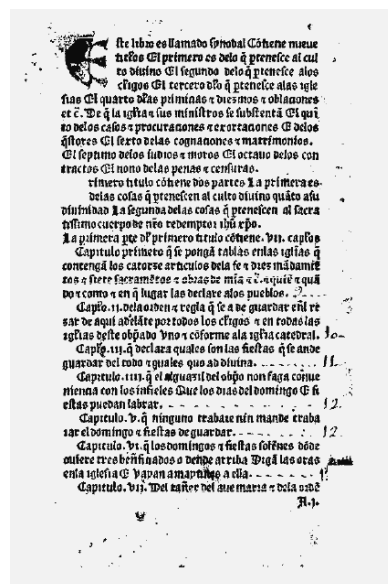 Este libro es llamado synobal Cõtiene nueue
titulos El primero es delo q̃ ptenesce al cul
to diuino El segundo delo q̃ ptenesce alos
cl'igos El tercero dlo q̃ ptenesce alas igle
sias El quarto dlas primicias ⁊ diezmos ⁊ oblaciones
et c̃. De q̃ la iglia ⁊ sus ministros se substentã El quī
to delos casos ⁊ procuraciones ⁊ exortaciones E delos
q̃stores El sexto delas cognaciones ⁊ matrimonios.
El septimo delos iudios ⁊ moros El octauo delos con
tractos El nono delas penas ⁊ censuras.
rimero titulo cõtiene dos partes La primera es
delas cosas q̃ ptenescen al culto diuino quãto asu
diuinidad La segunda delas cosas q̃ ptenescen al sacra
tissimo cuerpo de nr̃o redemptor ihũ xp̃o.
La primera pte dl' primero titulo cõtiene. VII. cap'los
Capitulo primero q̃ se pongã tablas enlas igl'ias q̃
contengã los catorze articulos dela fe ⁊ diez mãdamiẽ
tos ⁊ siete sacramẽtos ⁊ obras de mia ⁊ c̃. ⁊ quiẽ ⁊ quã
do ⁊ como ⁊ en q̃ lugar las declare alos pueblos.
Cap'lo .II. dela orden ⁊ regla q̃ se a de guardar enl' re
zar de aqui adelãte por todos los cl'igos ⁊ en todas las
igl'ias deste ob'pado vno ⁊ cõforme ala igl'ia catedral. 10
Cap'lo .III. q̃ declara quales son las fiestas q̃ se ande
guardar del todo ⁊ quales que ad diuina. 11
Capitulo .IIII. q̃ el alguazil del ob'po non faga cõue
niencia con los infieles Que los dias del domingo E fi
estas puedan labrar. 12
Capitulo .V. q̃ ninguno trabaie nin mande traba
iar el domingo ⁊ fiestas de guardar. 12
Capitulo .VI. q̃ los domingos ⁊ fiestas solẽnes dõde
ouiere tres bñfiçiados o dende arriba Digã las oras
enla iglesia E vayan a maytines a ella.
Capitulo .VII. Del tañer del aue maria ⁊ dela ordẽ
A.j.